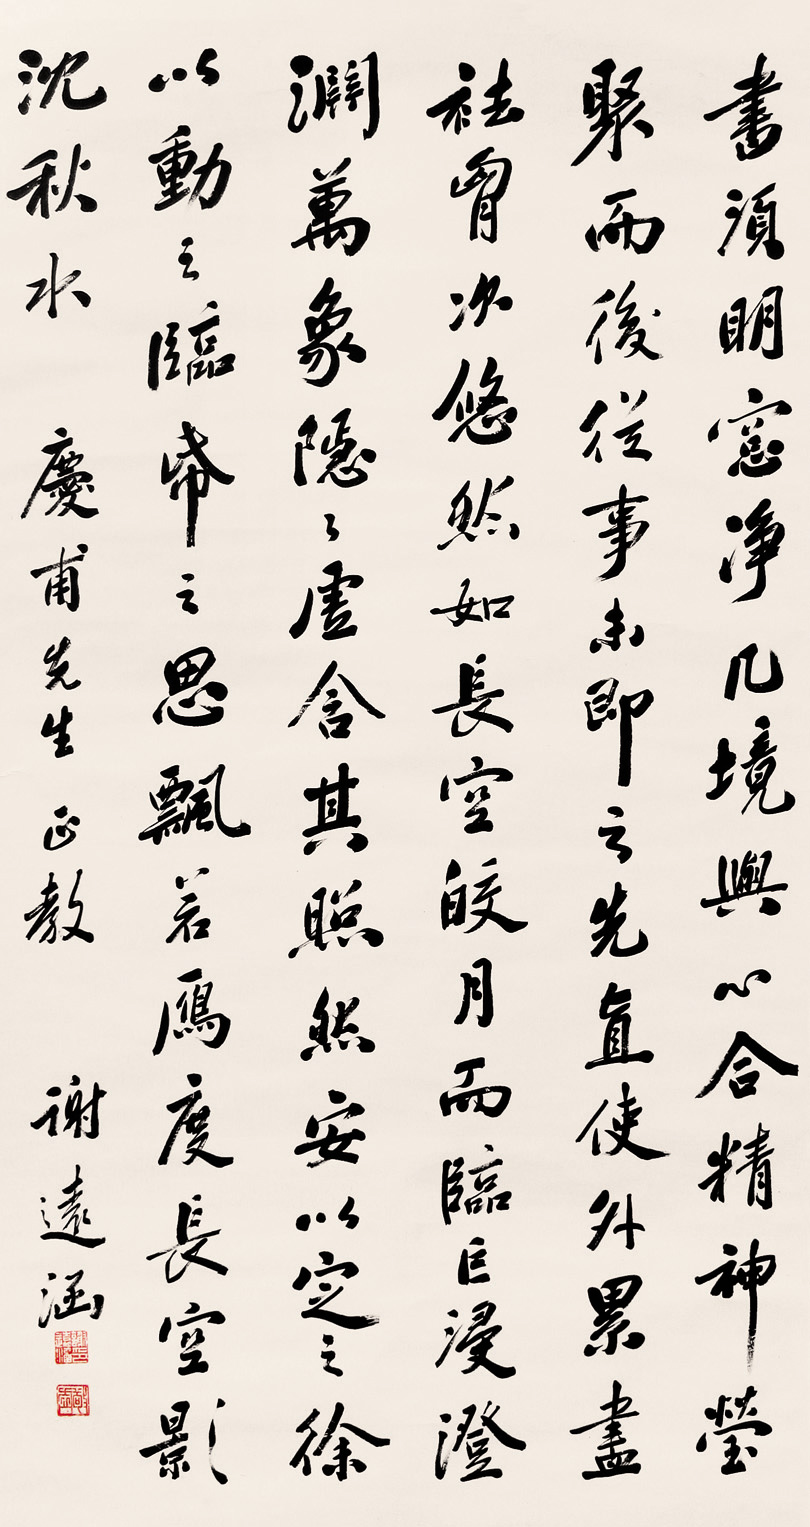 書須明窓净几境與心合精神瑩
聚而後從事未即云先直使外累盡
祛胷次悠然如長空皎月而臨巨浸澄
瀾萬象隱〻虛含其照然安以定之徐
以動之臨帋之思飄若鴈度長空影
沈秋水 慶甫先生 正教 謝遠涵